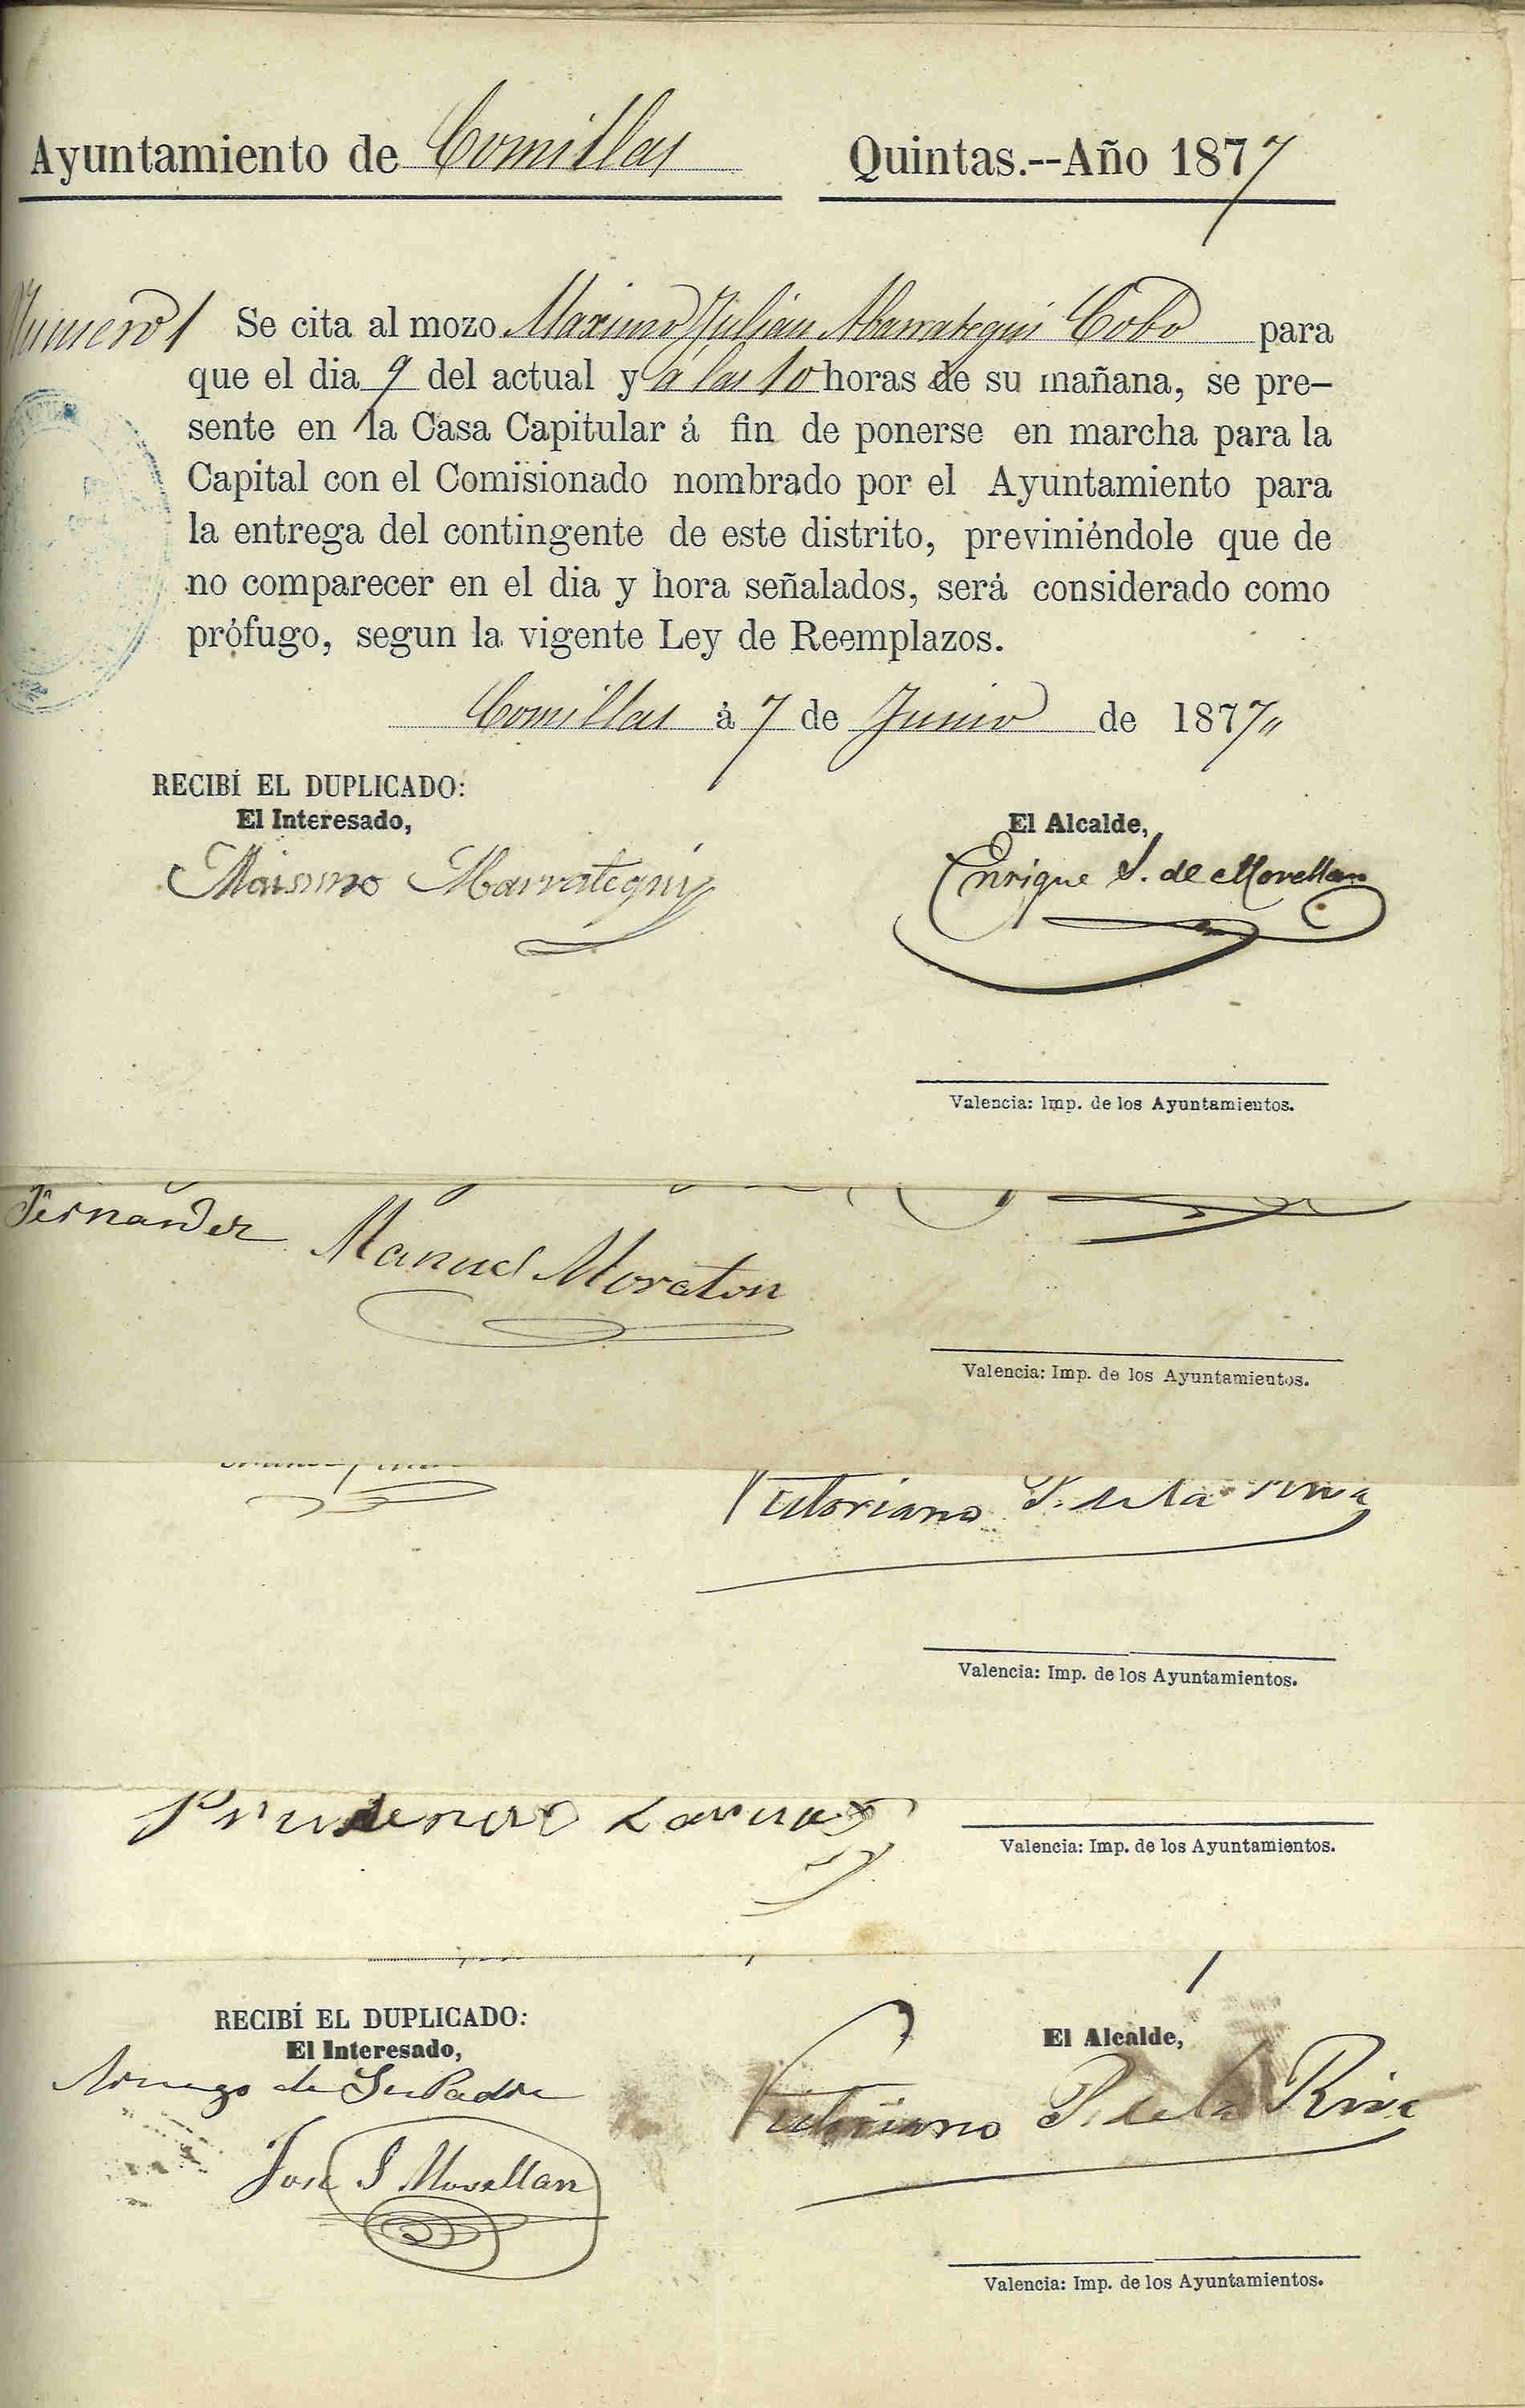 Ayuntamiento de Comillas Quintas.--Año 1877
Numero 1 Se cita al mozo Maximo Julian Abarrategui Cobo para
que el dia 9 del actual y á las 10 horas de su mañana, se pre-
sente en la Casa Capitular á fin de ponerse en marcha para la
Capital con el Comisionado nombrado por el Ayuntamiento para
la entrega del contingente de este distrito, previniéndole que de
no comparecer en el dia y hora señalados, será considerado como
prófugo, segun la vigente Ley de Reemplazos.
Comillas á 7 de Junio de 1877
RECIBÍ EL DUPLICADO:
El Interesado,
El Alcalde,
Maisimo Abarrategui
Enrique S. de Movellan
Valencia: Imp. de los Ayuntamientos.
Fernandez Manuel Moraton
Valencia: Imp. de los Ayuntamientos.
Victoriano P. de la Riva
Valencia: Imp. de los Ayuntamientos.
Prudencio
Valencia: Imp. de los Ayuntamientos.
RECIBÍ EL DUPLICADO:
El Interesado,
El Alcalde,
A ruego de Su Padre
Victoriano P. de la Riva
Jose S Movellan
Valencia: Imp. de los Ayuntamientos.